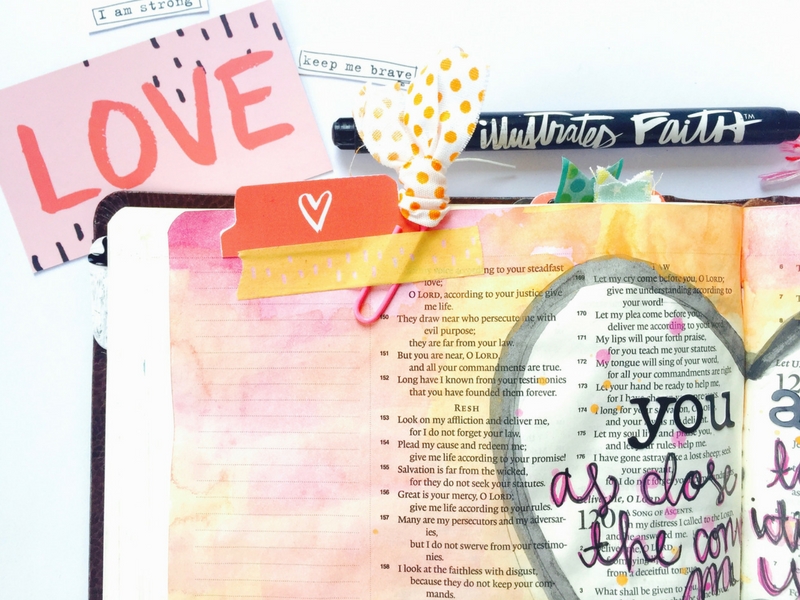 I am strong
LOVE
keep me brave
illustrated FAITH™
to your steadfast
love;
O LORD, according to your justice give
me life.
150 They draw near who persecute me with
evil purpose;
they are far from your law.
151 But you are near, O LORD,
and all your commandments are true.
152 Long have I known from your testimonies
that you have founded them forever.
RESH
153 Look on my affliction and deliver me,
for I do not forget your law.
154 Plead my cause and redeem me;
give me life according to your promise!
155 Salvation is far from the wicked,
for they do not seek your statutes.
156 Great is your mercy, O LORD;
give me life according to your rules.
157 Many are my persecutors and my adversar-
ies,
but I do not swerve from your testimo-
nies.
158 I look at the faithless with disgust,
because they do not keep your com-
mands.
169 Let my cry come before you, O LORD;
give me understanding according to
your word!
170 Let my plea come before you;
deliver me according to your word.
171 My lips will pour forth praise,
for you teach me your statutes.
172 My tongue will sing of your word,
for all your commandments are right.
173 Let your hand be ready to help me,
174 I long for your salvation, O
and your
175 Let my soul live and praise you,
and let your rules help me.
176 I have gone astray like a lost sheep; seek
your servant,
Deliver Me, O LORD
120 A SONG OF ASCENTS.
In my distress I called to the LORD,
and he answered me.
from a deceitful
3 What shall be given to
you
as close
the
6
7
8
Let Us
7